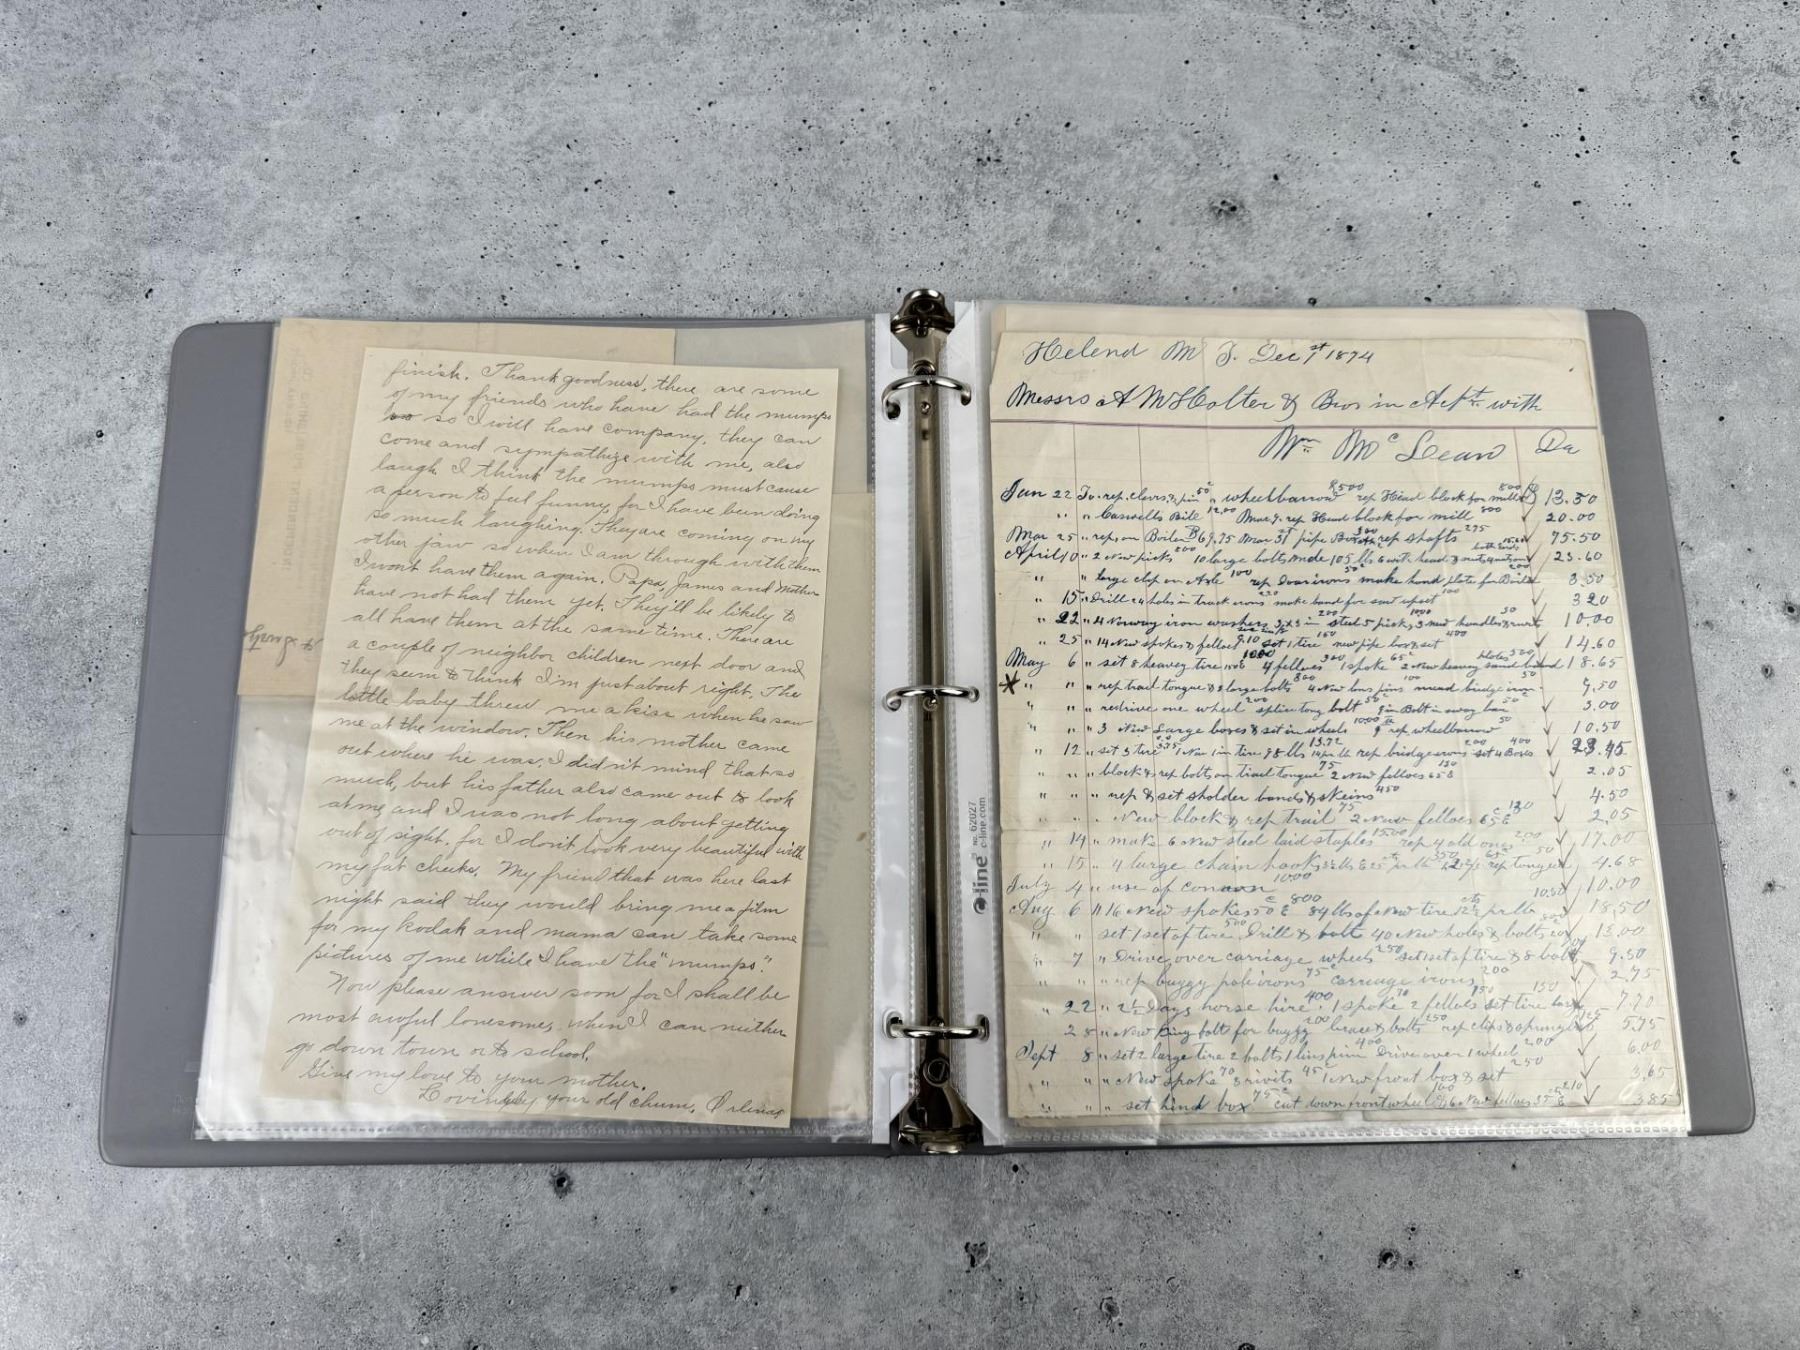 finish. Thank goodness, there are some
of my friends who have had the mumps
so I will have company, they can
come and sympathize with me, also
laugh. I think the mumps must cause
a person to feel funny, for I have been doing
so much laughing. They are coming on my
other jaw so when I am through with them
I wont have them again. Papa, James and Mother
have not had them yet. They'll be likely to
all have them at the same time. There are
a couple of neighbor children next door and
they seem to think I'm just about right. The
little baby threw me a kiss when he saw
me at the window. Then his mother came
out where he was. I didn't mind that so
much, but his father also came out to look
at me, and I was not long about getting
out of sight, for I don't look very beautiful with
my fat cheeks. My friend that was here last
night said they would bring me a film
for my kodak and mama can take some
pictures of me while I have the "mumps".
Now please answer soon for I shall be
most awful lonesome, when I can neither
go down town or to school.
Give my love to your mother.
Lovingly your old chum,
c-line NO. 62027
c-line.com
Helena M T. Dec 1st 1874
Messrs A M Holter & Bros in Act with
Wm Mc Lean
Jan 22 To rep. wheelbarrow rep Head block for mill 13.50
" " Caswells Bill 12.00 Mar 9 rep Head block for mill 800 20.00
Mar 25 " reps on Boiler 69.75 Mar 31 pipe rep shafts 275 75.50
April 10 " 2 New picks 10 large bolts 105 lbs 23.60
" " large clap on Axle 100 rep make hand plate for Boiler 3.50
" 15 " Drill 24 holes in track irons make band for 3 20
" 22 " 4 Norway iron washers 3 new handles 10.00
" 25 " 14 New spokes felloes set 1 tire 150 new pipe box & set 400 14.60
May 6 " set 8 heavey tire 4 felloes 1 spoke 65 2 New heavey sand band 18.65
" " " rep trail tongue & 2 large bolts 4 New 9.50
" " redrive one wheel 200 bolt 50 Bolt in sway bar 50 3.00
" " " 3 New Large boxes & set in wheels 1000 rep wheelbarrow 50 10.50
" 12 " set 3 tire 1 New rep bridge irons 200 set 4 Boxes 400 23.45
" " " block & rep bolts on trail tongue 75 2 New felloes 65 130 2.05
" " " rep & set sholder bands & skeins 450 4.50
" " " New block & rep trail 75 2 New felloes 65 130 2.05
" 14 " make 6 New steel laid staples 1500 rep 4 old ones 200 17.00
" 15 " 4 large chain hooks rep tongue 50 4.68
July 4 " use of 1000 10.00
Aug 6 " 16 New spokes 50 800 84 lbs of New tire 12½ pr lb 10.50 18.50
" " set 1 set of tire 500 Drill & bolt 40 New holes & bolts 13.00
" 7 " Drive over carriage wheels 250 set 1 set of tire & 8 bolts 9.50
" " " rep buggy pole irons 75 carriage irons 200 2.75
" 22 " 2½ Days horse hire 400 1 spoke 70 2 felloes 150 set tire 150 7.70
" 28 " New King bolt for buggy 200 brace & bolts 250 rep clips & spring 125 5.75
Sept 8 " set 2 large tire 2 bolts 400 Drive over 1 wheel 200 6.00
" " " New spoke 70 3 rivits 45 1 New front box & set 250 3.65
" " " set hind box 75 cut down front wheel 100 6 New felloes 35 210 3.85